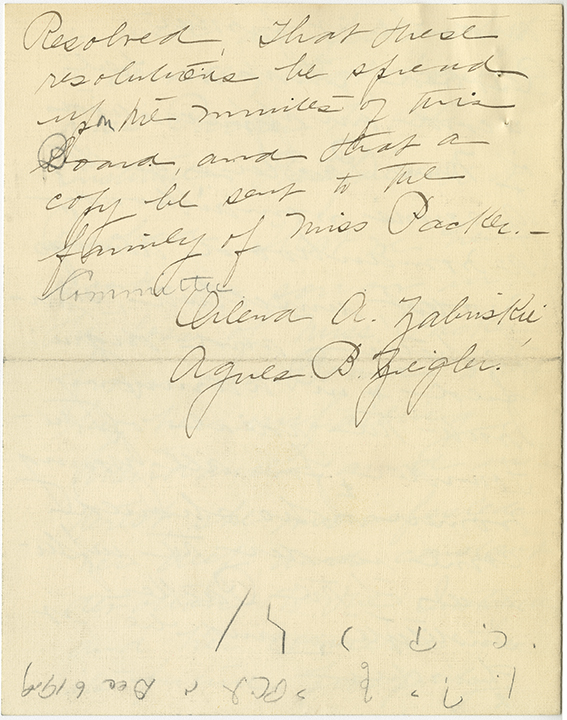 Resolved, That these
resolutions be spread
upon the minutes of this
Board, and that a
copy be sent to the
family of Miss Packer. –
Committee
Arlena A. Zabriskie,
Agnes B. Ziegler.
Dec 6 1929